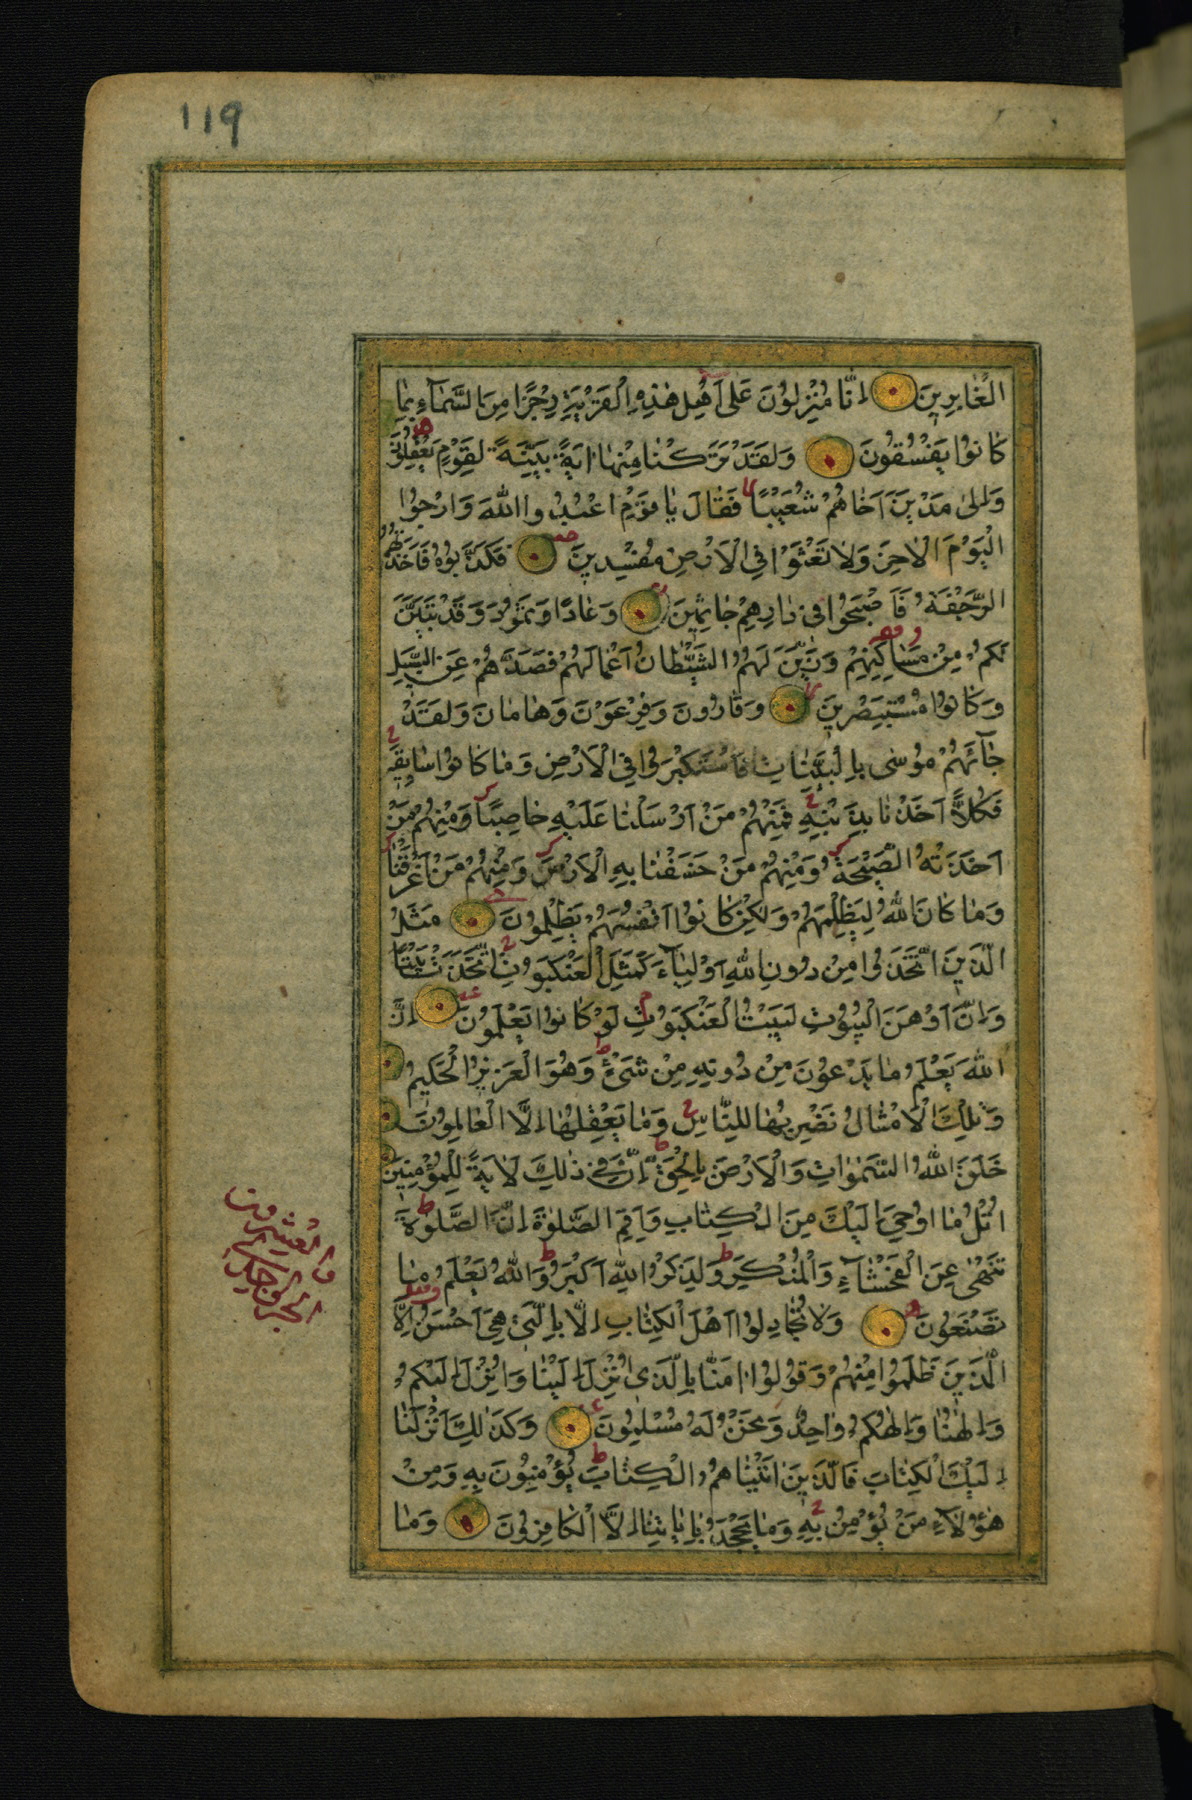 119
الْغَابِرِينَ إِنَّا مُنْزِلُونَ عَلَى أَهْلِ هَذِهِ الْقَرْيَةِ رِجْزًا مِنَ السَّمَاءِ بِمَا
كَانُوا يَفْسُقُونَ وَلَقَدْ تَرَكْنَا مِنْهَا آيَةً بَيِّنَةً لِقَوْمٍ يَعْقِلُونَ
وَإِلَى مَدْيَنَ أَخَاهُمْ شُعَيْبًا فَقَالَ يَا قَوْمِ اعْبُدُوا اللَّهَ وَارْجُوا
الْيَوْمَ الْآخِرَ وَلَا تَعْثَوْا فِي الْأَرْضِ مُفْسِدِينَ فَكَذَّبُوهُ فَأَخَذَتْهُمُ
الرَّجْفَةُ فَأَصْبَحُوا فِي دَارِهِمْ جَاثِمِينَ وَعَادًا وَثَمُودَ وَقَدْ تَبَيَّنَ
لَكُمْ مِنْ مَسَاكِنِهِمْ وَزَيَّنَ لَهُمُ الشَّيْطَانُ أَعْمَالَهُمْ فَصَدَّهُمْ عَنِ السَّبِيلِ
وَكَانُوا مُسْتَبْصِرِينَ وَقَارُونَ وَفِرْعَوْنَ وَهَامَانَ وَلَقَدْ
جَآئَهُمْ مُوسَى بِالْبَيِّنَاتِ فَاسْتَكْبَرُوا فِي الْأَرْضِ وَمَا كَانُوا سَابِقِينَ
فَكُلًّا أَخَذْنَا بِذَنْبِهِ فَمِنْهُمْ مَنْ أَرْسَلْنَا عَلَيْهِ حَاصِبًا وَمِنْهُمْ مَنْ
أَخَذَتْهُ الصَّيْحَةُ وَمِنْهُمْ مَنْ خَسَفْنَا بِهِ الْأَرْضَ وَمِنْهُمْ مَنْ أَغْرَقْنَا
وَمَا كَانَ اللَّهُ لِيَظْلِمَهُمْ وَلَكِنْ كَانُوا أَنْفُسَهُمْ يَظْلِمُونَ مَثَلُ
الَّذِينَ اتَّخَذُوا مِنْ دُونِ اللَّهِ أَوْلِيَاءَ كَمَثَلِ الْعَنْكَبُوتِ اتَّخَذَتْ بَيْتًا
وَإِنَّ أَوْهَنَ الْبُيُوتِ لَبَيْتُ الْعَنْكَبُوتِ لَوْ كَانُوا يَعْلَمُونَ إِنَّ
اللَّهَ يَعْلَمُ مَا يَدْعُونَ مِنْ دُونِهِ مِنْ شَيْءٍ وَهُوَ الْعَزِيزُ الْحَكِيمُ
وَتِلْكَ الْأَمْثَالُ نَضْرِبُهَا لِلنَّاسِ وَمَا يَعْقِلُهَا إِلَّا الْعَالِمُونَ
خَلَقَ اللَّهُ السَّمَوَاتِ وَالْأَرْضَ بِالْحَقِّ إِنَّ فِي ذَلِكَ لَآيَةً لِلْمُؤْمِنِينَ
اتْلُ مَا أُوحِيَ إِلَيْكَ مِنَ الْكِتَابِ وَأَقِمِ الصَّلَوةَ إِنَّ الصَّلَوةَ
تَنْهَى عَنِ الْفَحْشَاءِ وَالْمُنْكَرِ وَلَذِكْرُ اللَّهِ أَكْبَرُ وَاللَّهُ يَعْلَمُ مَا
تَصْنَعُونَ وَلَا تُجَادِلُوا أَهْلَ الْكِتَابِ إِلَّا بِالَّتِي هِيَ أَحْسَنُ إِلَّا
الَّذِينَ ظَلَمُوا مِنْهُمْ وَقُولُوا آمَنَّا بِالَّذِي أُنْزِلَ إِلَيْنَا وَأُنْزِلَ إِلَيْكُمْ
وَإِلَهُنَا وَإِلَهُكُمْ وَاحِدٌ وَنَحْنُ لَهُ مُسْلِمُونَ وَكَذَلِكَ أَنْزَلْنَا
إِلَيْكَ الْكِتَابَ فَالَّذِينَ آتَيْنَاهُمُ الْكِتَابَ يُؤْمِنُونَ بِهِ وَمِنْ
هَؤُلَاءِ مَنْ يُؤْمِنُ بِهِ وَمَا يَجْحَدُ بِآيَاتِنَا إِلَّا الْكَافِرُونَ وَمَا